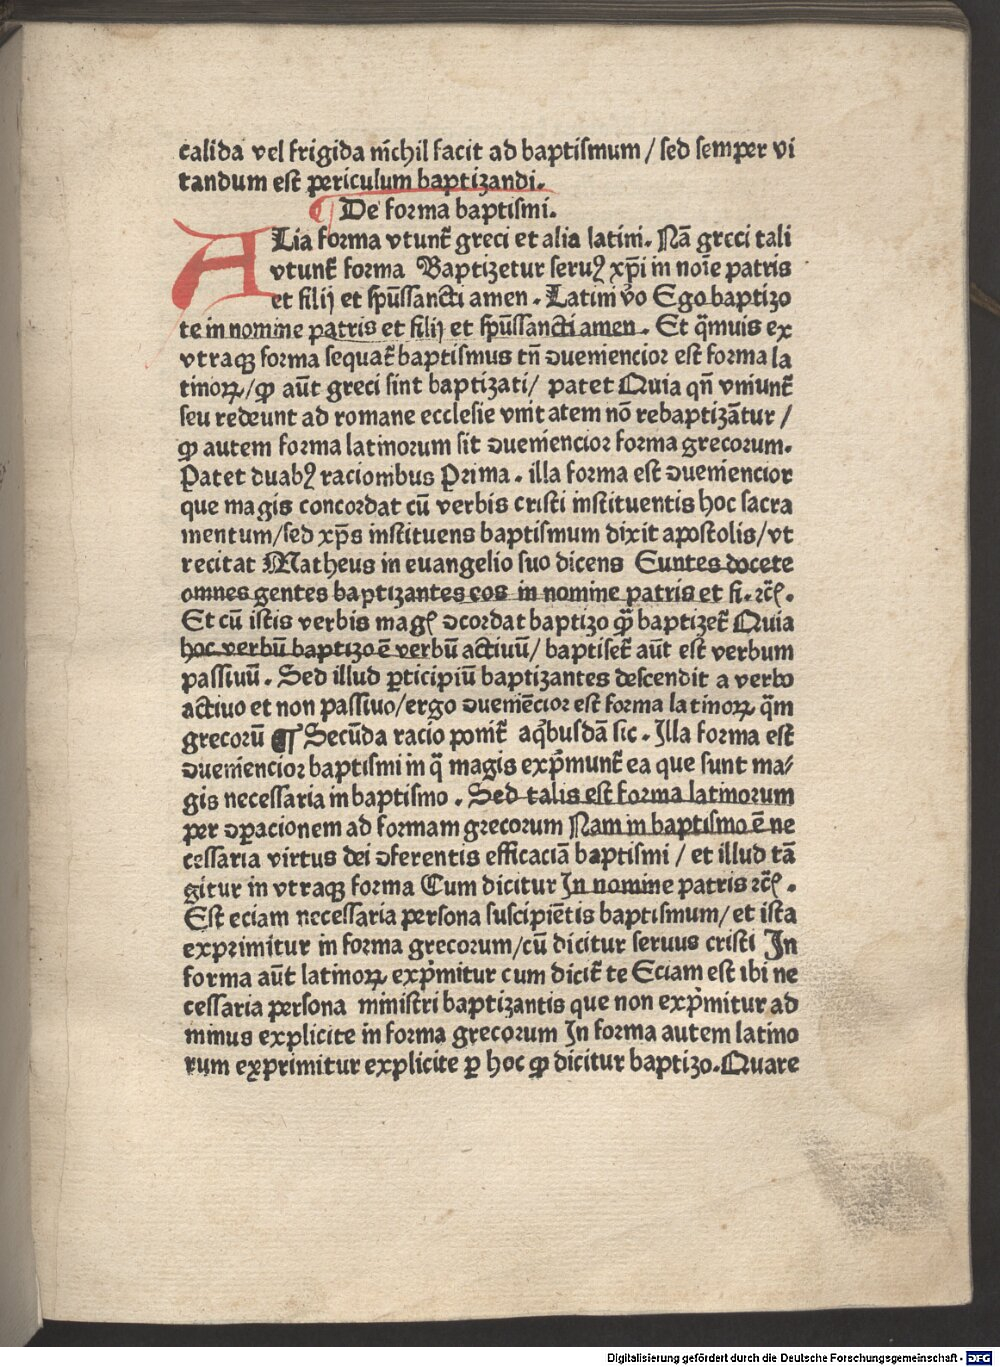 calida vel frigida nĩchil facit ad baptiſmum / ſed ſemper vi
tandum eſt periculum baptizandi.
¶ De forma baptiſmi.
ALia forma vtunt᷑ greci et alia latini. Nã greci tali
vtunt᷑ forma Baptizetur ſeruꝰ xp̄i in noīe patris
et filij et ſpūſſancti amen. Latini v̊o Ego baptizo
te in nomine patris et filij et ſpūſſancti amen. Et q̄muis ex
vtraqꝫ forma ſequat᷑ baptiſmus tñ ꝯueniencior eſt forma la
tinoꝝ/ꝙ aūt greci ſint baptizati/ patet Quia qñ vniunt᷑
ſeu redeunt ad romane eccleſie vnitatem nõ rebaptizãtur /
ꝙ autem forma latinorum ſit ꝯueniencior forma grecorum.
Patet duabꝰ racionibus Prima. illa forma eſt ꝯueniencior
que magis concordat cũ verbis criſti inſtituentis hoc ſacra
mentum/ſed xp̄s inſtituens baptiſmum dixit apoſtolis/vt
recitat Matheus in euangelio ſuo dicens Euntes docete
omnes gentes baptizantes eos in nomine patris et fi. ⁊cͤ.
Et cũ iſtis verbis magͥ ꝯcordat baptizo q̄ꝫ baptizet᷑ Quia
hoc verbũ baptizo ē verbũ actiuũ/ baptiſet᷑ aūt eſt verbum
paſſiuũ. Sed illud ꝑticipiũ baptizantes deſcendit a verbo
actiuo et non paſſiuo/ergo ꝯueniẽcior eſt forma latinoꝝ q̄m
grecorũ ¶ Secũda racio ponit᷑ aq̇buſdã ſic. Illa forma eſt
ꝯueniencior baptiſmi in q̄ magis exp̄munt᷑ ea que ſunt ma⸗
gis neceſſaria in baptiſmo. Sed talis eſt forma latinorum
per ꝯꝑacionem ad formam grecorum Nam in baptiſmo ē ne
ceſſaria virtus dei ꝯferentis efficaciã baptiſmi / et illud tã
gitur in vtraqꝫ forma Cum dicitur In nomine patris ⁊cͤ.
Eſt eciam neceſſaria perſona ſuſcipiẽtis baptiſmum/ et iſta
exprimitur in forma grecorum/cũ dicitur ſeruus criſti In
forma aūt latinoꝝ exp̄mitur cum dicit᷑ te Eciam eſt ibi ne
ceſſaria perſona miniſtri baptizantis que non exp̄mitur ad
minus explicite in forma grecorum In forma autem latino
rum exprimitur explicite ꝑ hoc ꝙ dicitur baptizo. Quare
Digitalisierung gefördert durch die Deutsche Forschungsgemeinschaft - DFG